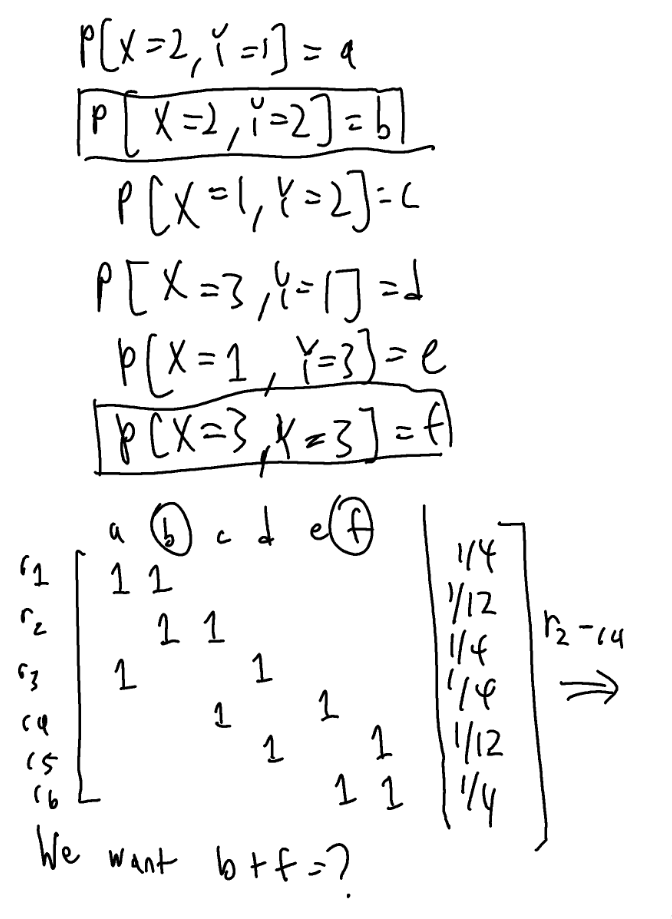 P[X=2, Y=1] = a
P[X=2, Y=2] = b
P[X=1, Y=2] = c
P[X=3, Y=1] = d
P[X=1, Y=3] = e
P[X=3, Y=3] = f
a b c d e f
r1 1 1 1/4
r2 1 1 1/12
r3 1 1 1/4
r4 1 1 1/4
r5 1 1 1/12
r6 1 1 1/4
r2 - r4 ⇒
We want b+f=?